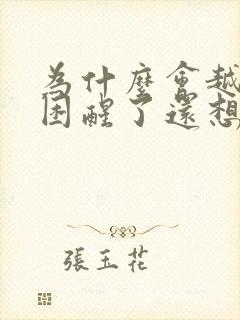 為什麼會越
困醒了還想
張玉花